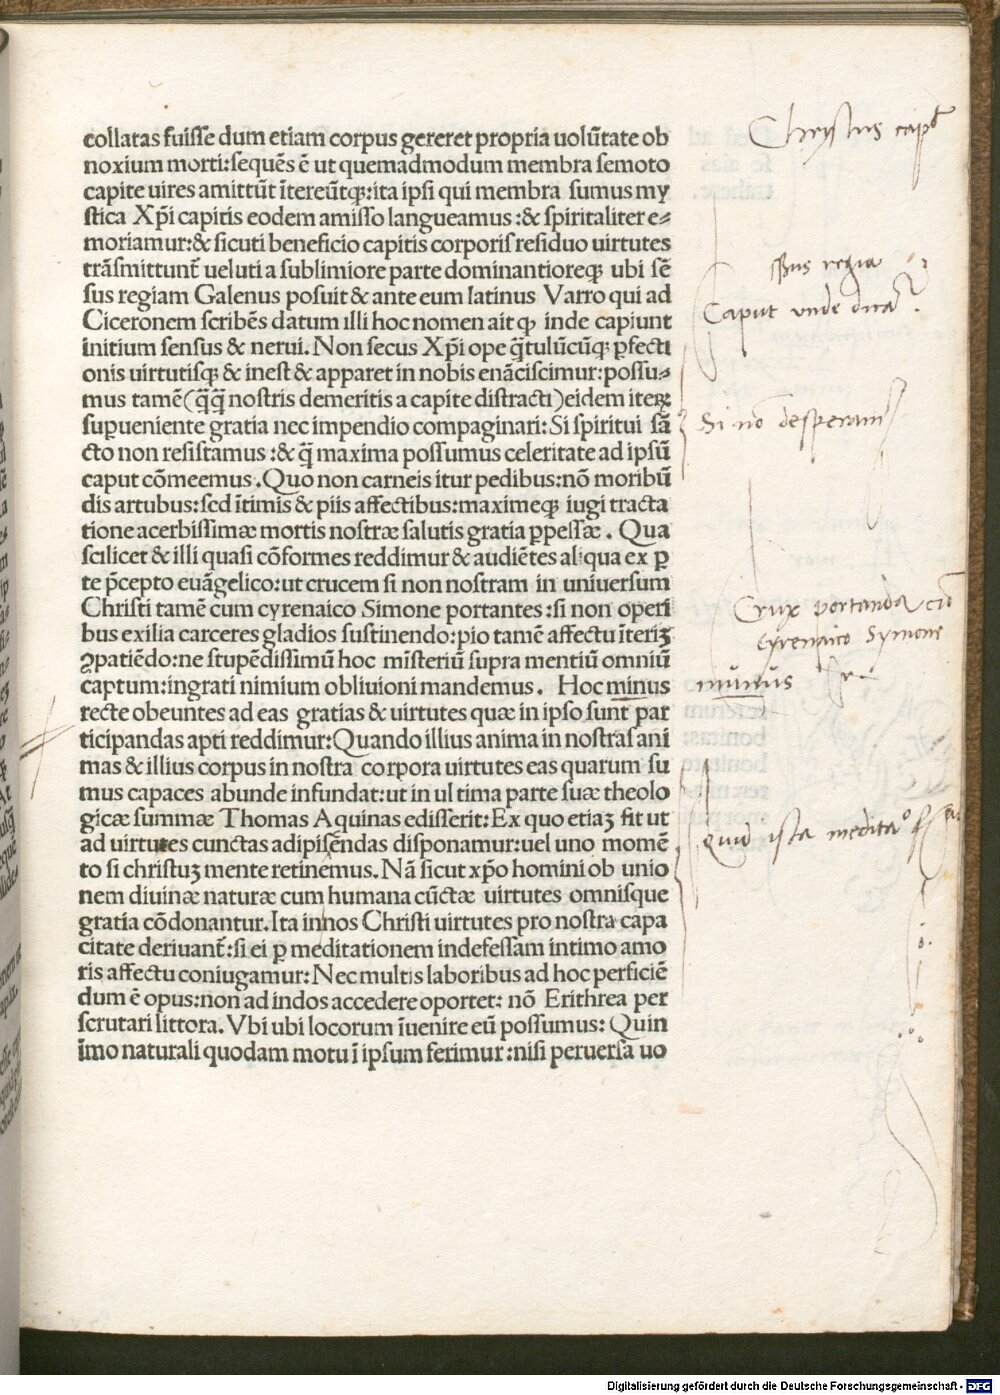 collatas fuisse dum etiam corpus gereret propria uolũtate ob
noxium morti:sequẽs ẽ ut quemadmodum membra semoto
capite uires amittũt ĩtereũtq;:ita ipsi qui membra sumus my
stica Xp̃i capitis eodem amisso langueamus:& spiritaliter e-
moriamur:& sicuti beneficio capitis corporis residuo uirtutes
trãsmittunt̃ ueluti a sublimiore parte dominantioreq; ubi sẽ
sus regiam Galenus posuit & ante eum latinus Varro qui ad
Ciceronem scribẽs datum illi hoc nomen ait ꝙ inde capiunt
initium sensus & nerui. Non secus Xp̃i ope q̃tulũcũq; ꝑfecti
onis uirtutisq; & inest & apparet in nobis enãciscimur:possu-
mus tamẽ (q̃q̃ nostris demeritis a capite distracti) eidem iteꝝ
suꝑueniente gratia nec impendio compaginari: Si spiritui sã
cto non resistamus:& q̃ maxima possumus celeritate ad ipsũ
caput cõmeemus. Quo non carneis itur pedibus:nõ moribũ
dis artubus:sed ĩtimis & piis affectibus:maximeq; iugi tracta
tione acerbissimæ mortis nostræ salutis gratia ꝑpessæ. Qua
scilicet & illi quasi cõformes reddimur & audiẽtes aliqua ex ꝑ
te p̃cepto euãgelico:ut crucem si non nostram in uniuersum
Christi tamẽ cum cyrenaico Simone portantes:si non operi
bus exilia carceres gladios sustinendo:pio tamẽ affectu ĩteriꝫ
ꝯpatiẽdo:ne stupẽdissimũ hoc mĩsteriũ supra mentiũ omniũ
captum:ingrati nimium obliuioni mandemus. Hoc minus
recte obeuntes ad eas gratias & uirtutes quæ in ipso sunt par
ticipandas apti reddimur:Quando illius anima in nostras ani
mas & illius corpus in nostra corpora uirtutes eas quarum su
mus capaces abunde infundat:ut in ultima parte suæ theolo
gicæ summæ Thomas Aquinas edisserit:Ex quo etiaꝫ fit ut
ad uirtutes cunctas adipisẽndas disponamur:uel uno momẽ
to si christuꝫ mente retinemus. Nã sicut xp̃o homini ob unio
nem diuinæ naturæ cum humana cũctæ uirtutes omnisque
gratia cõdonantur. Ita innos Christi uirtutes pro nostra capa
citate deriuant̃:si ei ꝑ meditationem indefessam intimo amo
ris affectu coniugamur:Nec multis laboribus ad hoc perficiẽ
dum ẽ opus:non ad indos accedere oportet: nõ Erithrea per
scrutari littora. Vbi ubi locorum ĩuenire eũ possumus: Quin
ĩmo naturali quodam motu ĩ ipsum ferimur:nisi peruersa uo
Chrystus cap̃t
regia
Caput unde dicat̃
Si nõ desperam
Crux portanda cũ
Cyrenaico Symone
munus
Quid ista medita
Digitalisierung gefördert durch die Deutsche Forschungsgemeinschaft - DFG